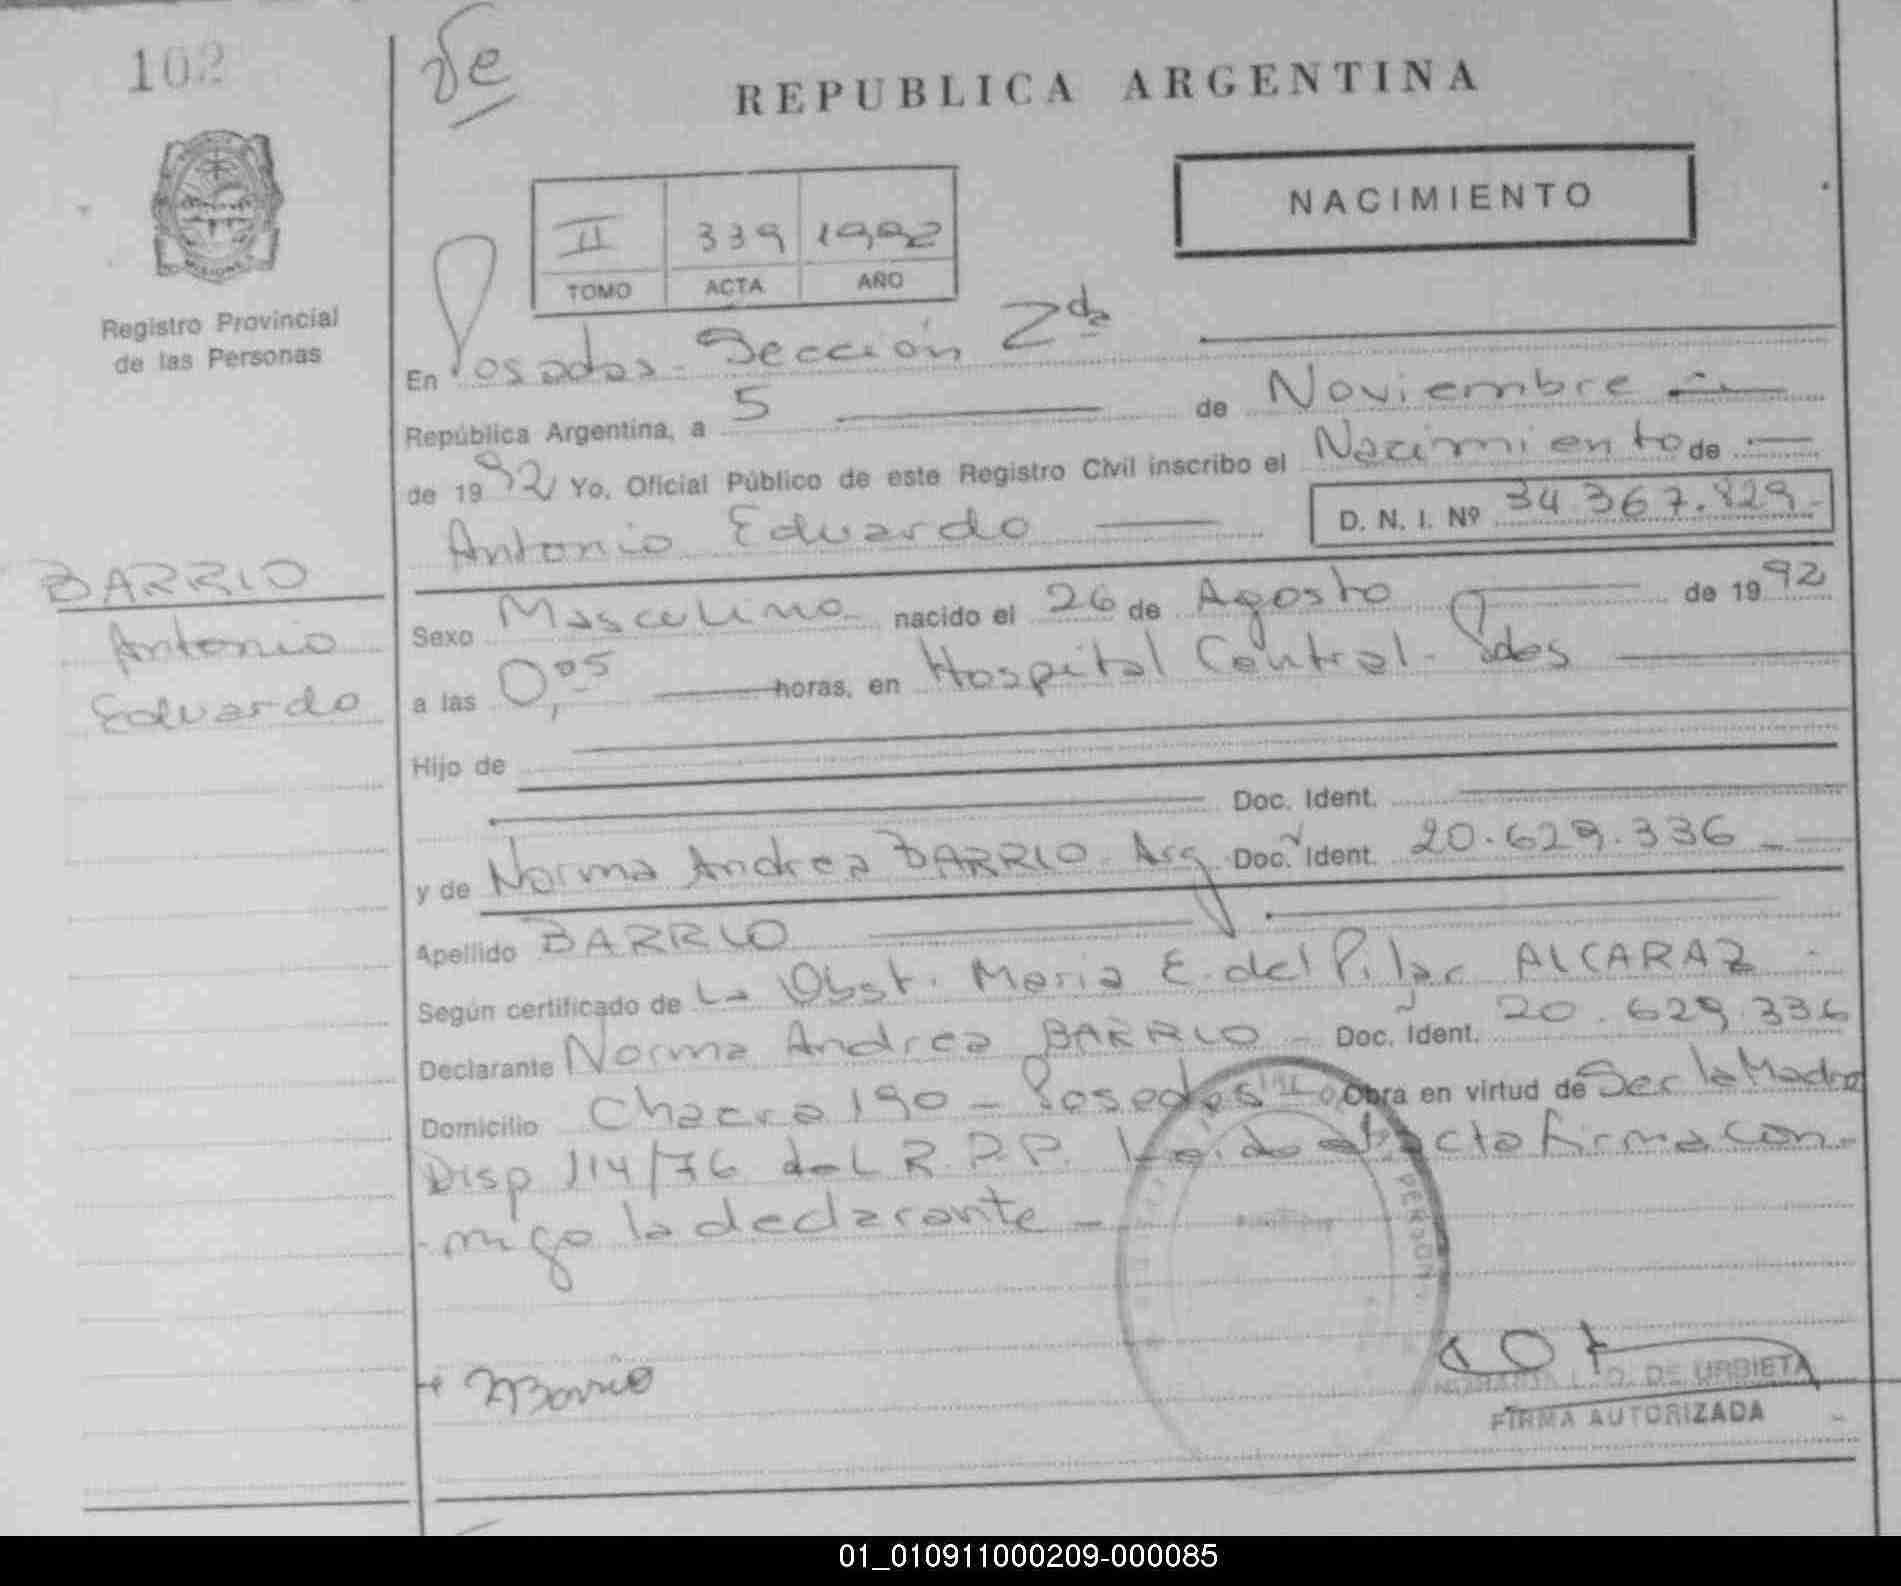 102
REPUBLICA ARGENTINA
NACIMIENTO
II 339 1992
TOMO ACTA AÑO
MISIONES
Registro Provincial
de las Personas
En Posadas - Sección 2da
República Argentina, a 5 de Noviembre
de 1992 Yo, Oficial Público de este Registro Civil inscribo el Nacimiento de
Antonio Eduardo D. N. I. Nº 34 367.829-
BARRIO
Antonio
Eduardo
Sexo Masculino nacido el 26 de Agosto de 1992
a las 0,05 horas, en Hospital Central - Pdas
Hijo de
Doc. Ident.
y de Norma Andrea BARRIO - Arg. Doc. Ident. 20.629.336 -
Apellido BARRIO
Según certificado de La Obst. Maria E. del Pilar ALCARAZ -
Declarante Norma Andrea BARRIO - Doc. Ident. 20.629.336
Domicilio Chacra 190 - Posadas Obra en virtud de Ser la Madre
Disp 114/76 del R.P.P. Leída el acta firma con-
-migo la declarante -
PERSON
NBarrio
L. O. DE URBIETA
FIRMA AUTORIZADA
01_010911000209-000085